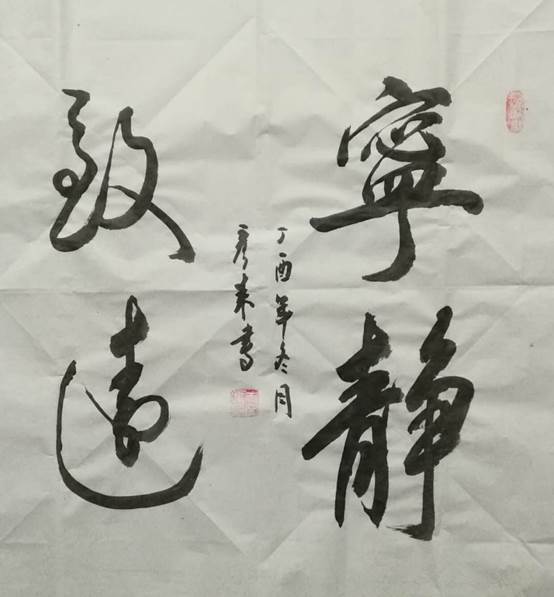 寧静
致遠
丁酉年冬月
彦来書